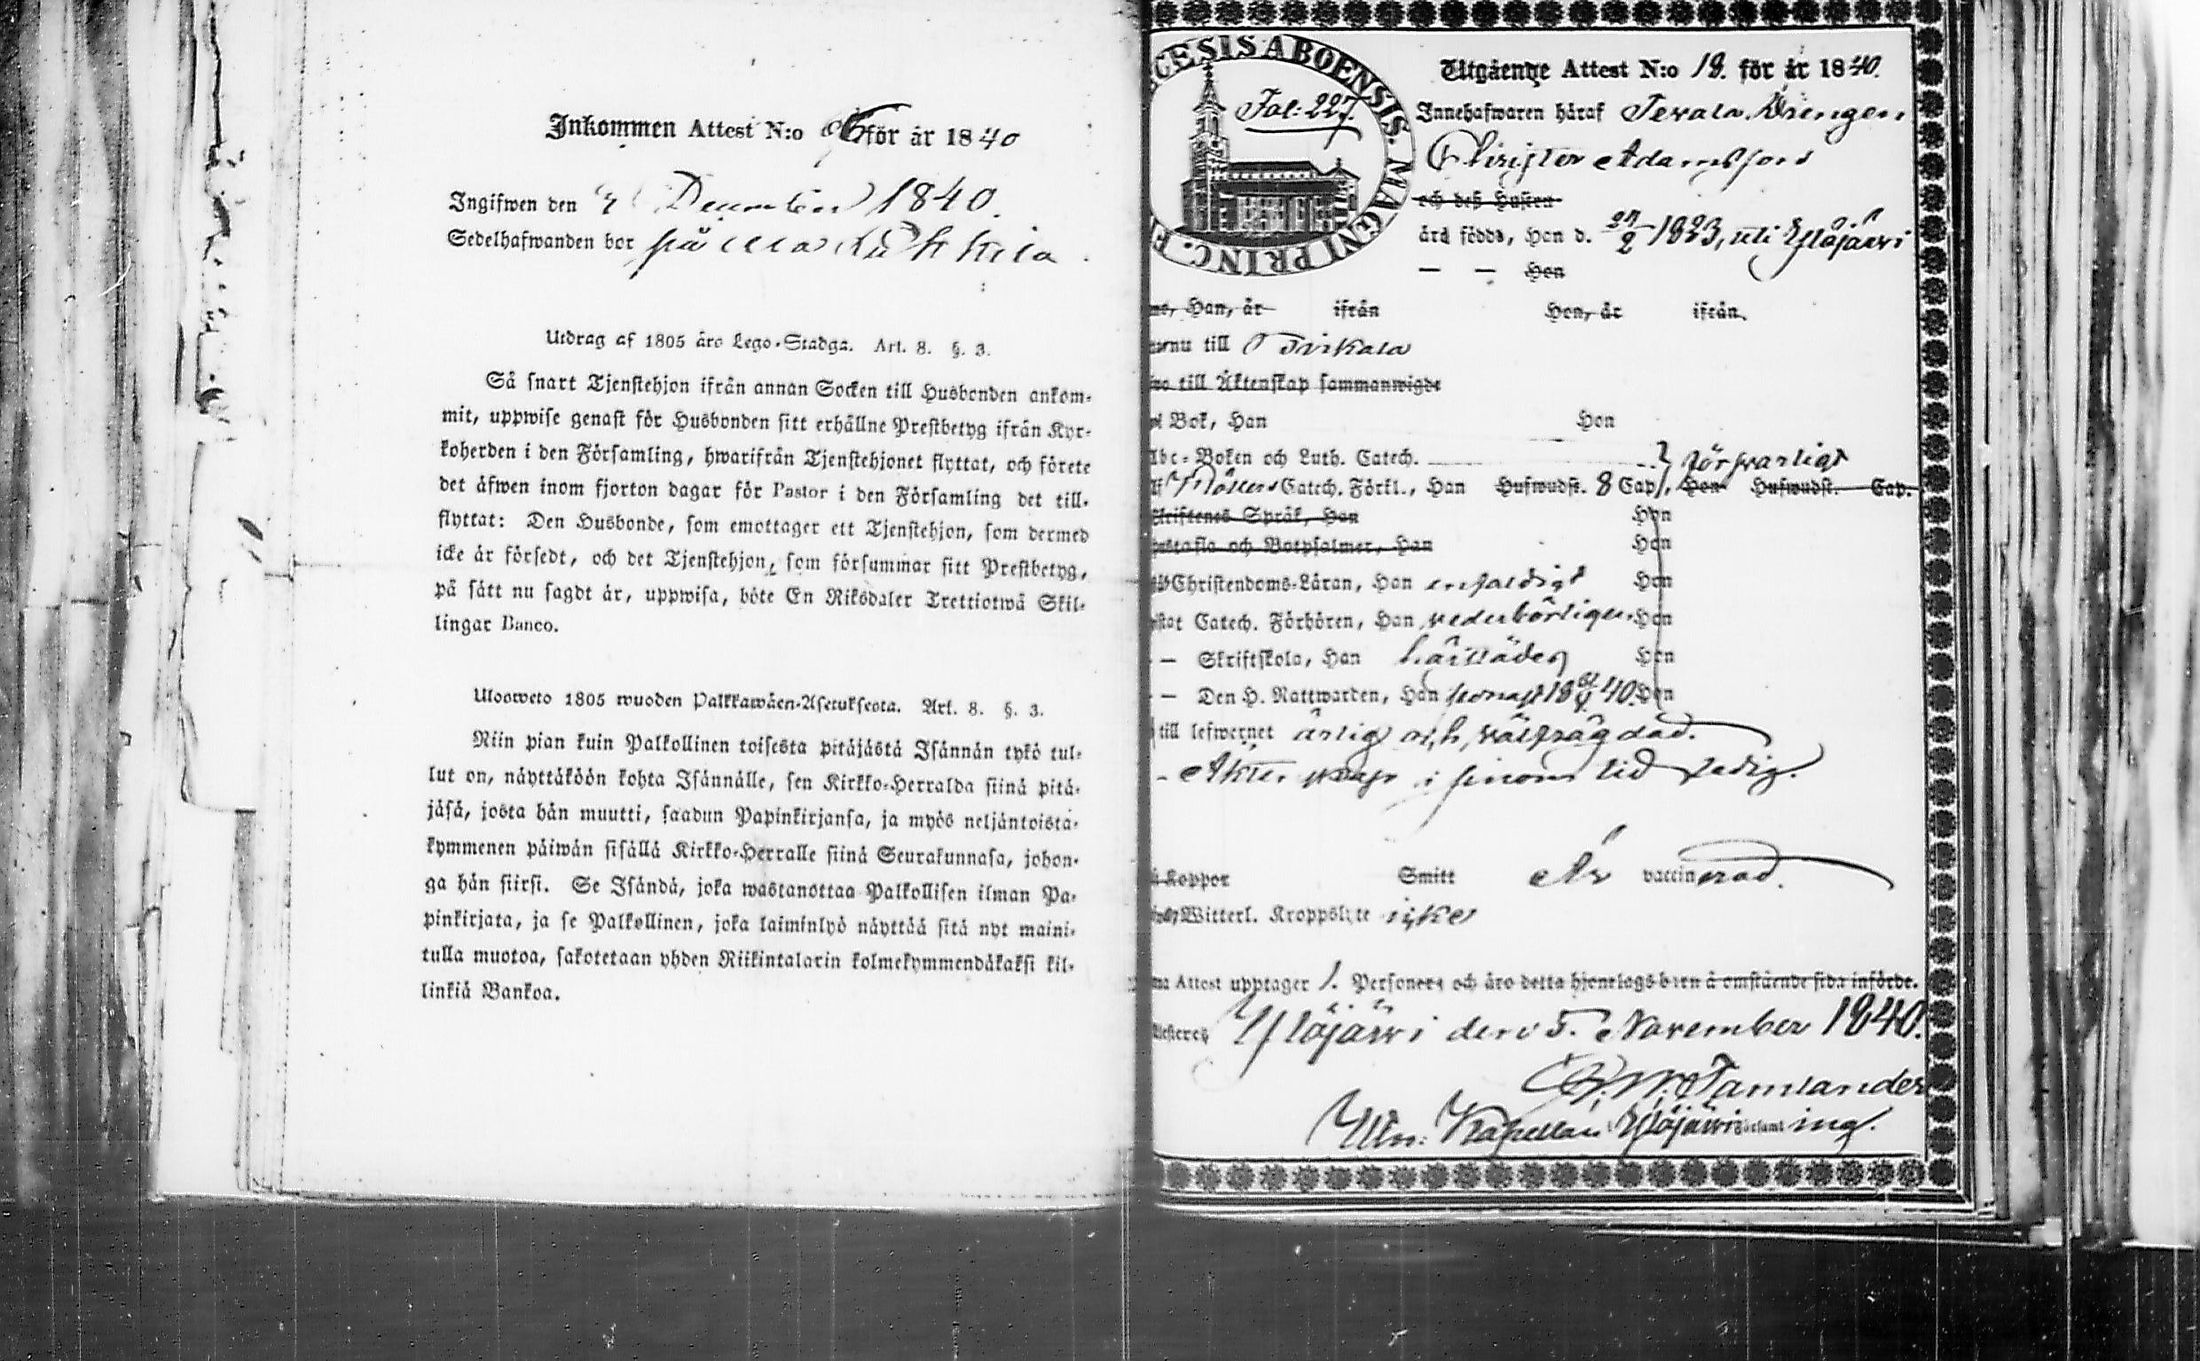 Inkommen Attest N:o för år 1840
Ingifwen den December 1840.
Sedelhafwanden bor på
Utdrag af 1805 års Lego-Stadga. Art. 8. §. 3.
Så snart Tjenstehjon ifrån annan Socken till Husbonden ankom-
mit, uppwise genast för Husbonden sitt erhållne Prestbetyg ifrån Kyr-
koherden i den Församling, hwarifrån Tjenstehjonet flyttat, och förete
det äfwen inom fjorton dagar för Pastor i den Församling det till-
flyttat: Den Husbonde, som emottager ett Tjenstehjon, som dermed
icke är försedt, och det Tjenstehjon, som försummar sitt Prestbetyg,
på sätt nu sagdt är, uppwisa, böte En Riksdaler Trettiotwå Skil-
lingar Banco.
Ulosweto 1805 wuoden Palkkawäen-Asetuksesta. Art. 8. §. 3.
Niin pian kuin Palkollinen toisesta pitäjästä Isännän tykö tul-
lut on, näyttäköön kohta Isännälle, sen Kirkko-Herralda siinä pitä-
jäsä, josta hän muutti, saadun Papinkirjansa, ja myös neljäntoista-
kymmenen päiwän sisällä Kirkko-Herralle siinä Seurakunnasa, johon-
ga hän siirsi. Se Isändä, joka wastanottaa Palkollisen ilman Pa-
pinkirjata, ja se Palkollinen, joka laiminlyö näyttää sitä nyt maini-
tulla muotoa, sakotetaan yhden Riikintalarin kolmekymmendäkaksi kil-
linkiä Bankoa.
CESIS ABOENSIS. MAGNI PRINC. F
Fol: 227.
Utgående Attest N:o 19. för år 1840.
Innehafwaren häraf Drengen
Christer Adamsson
och deß Hustru
äro födde, Han d. 1823, uti Ylöjärwi
— — Hon
Han, år ifrån Hon, år ifrån
till
till Äktenskap sammanwigde
Bok, Han Hon
Abc-Boken och Luth. Catech. försvarligt
Catech. Förkl., Han Hufwudst. 8 Cap., Hon Hufwudst. Cap.
Skriftenes Språk, Han Hon
Hustafla och Botpsalmer, Han Hon
Christendoms-Läran, Han enfaldigt Hon
Catech. Förhören, Han vederbörligen Hon
— Skriftskola, Han härstädes Hon
— Den H. Nattwarden, Han senast 18 40. Hon
till lefwernet ärlig och välfrägdad.
Äktenskap i sinom tid ledig.
Koppor Smitt Är vaccinerad.
Witterl. Kroppslyte icke
Attest upptager 1. Personers och äro detta hjonelags barn å omstående sida införde.
Ylöjärwi den 5. November 1840.
Kapellan i Ylöjärwi Församling.